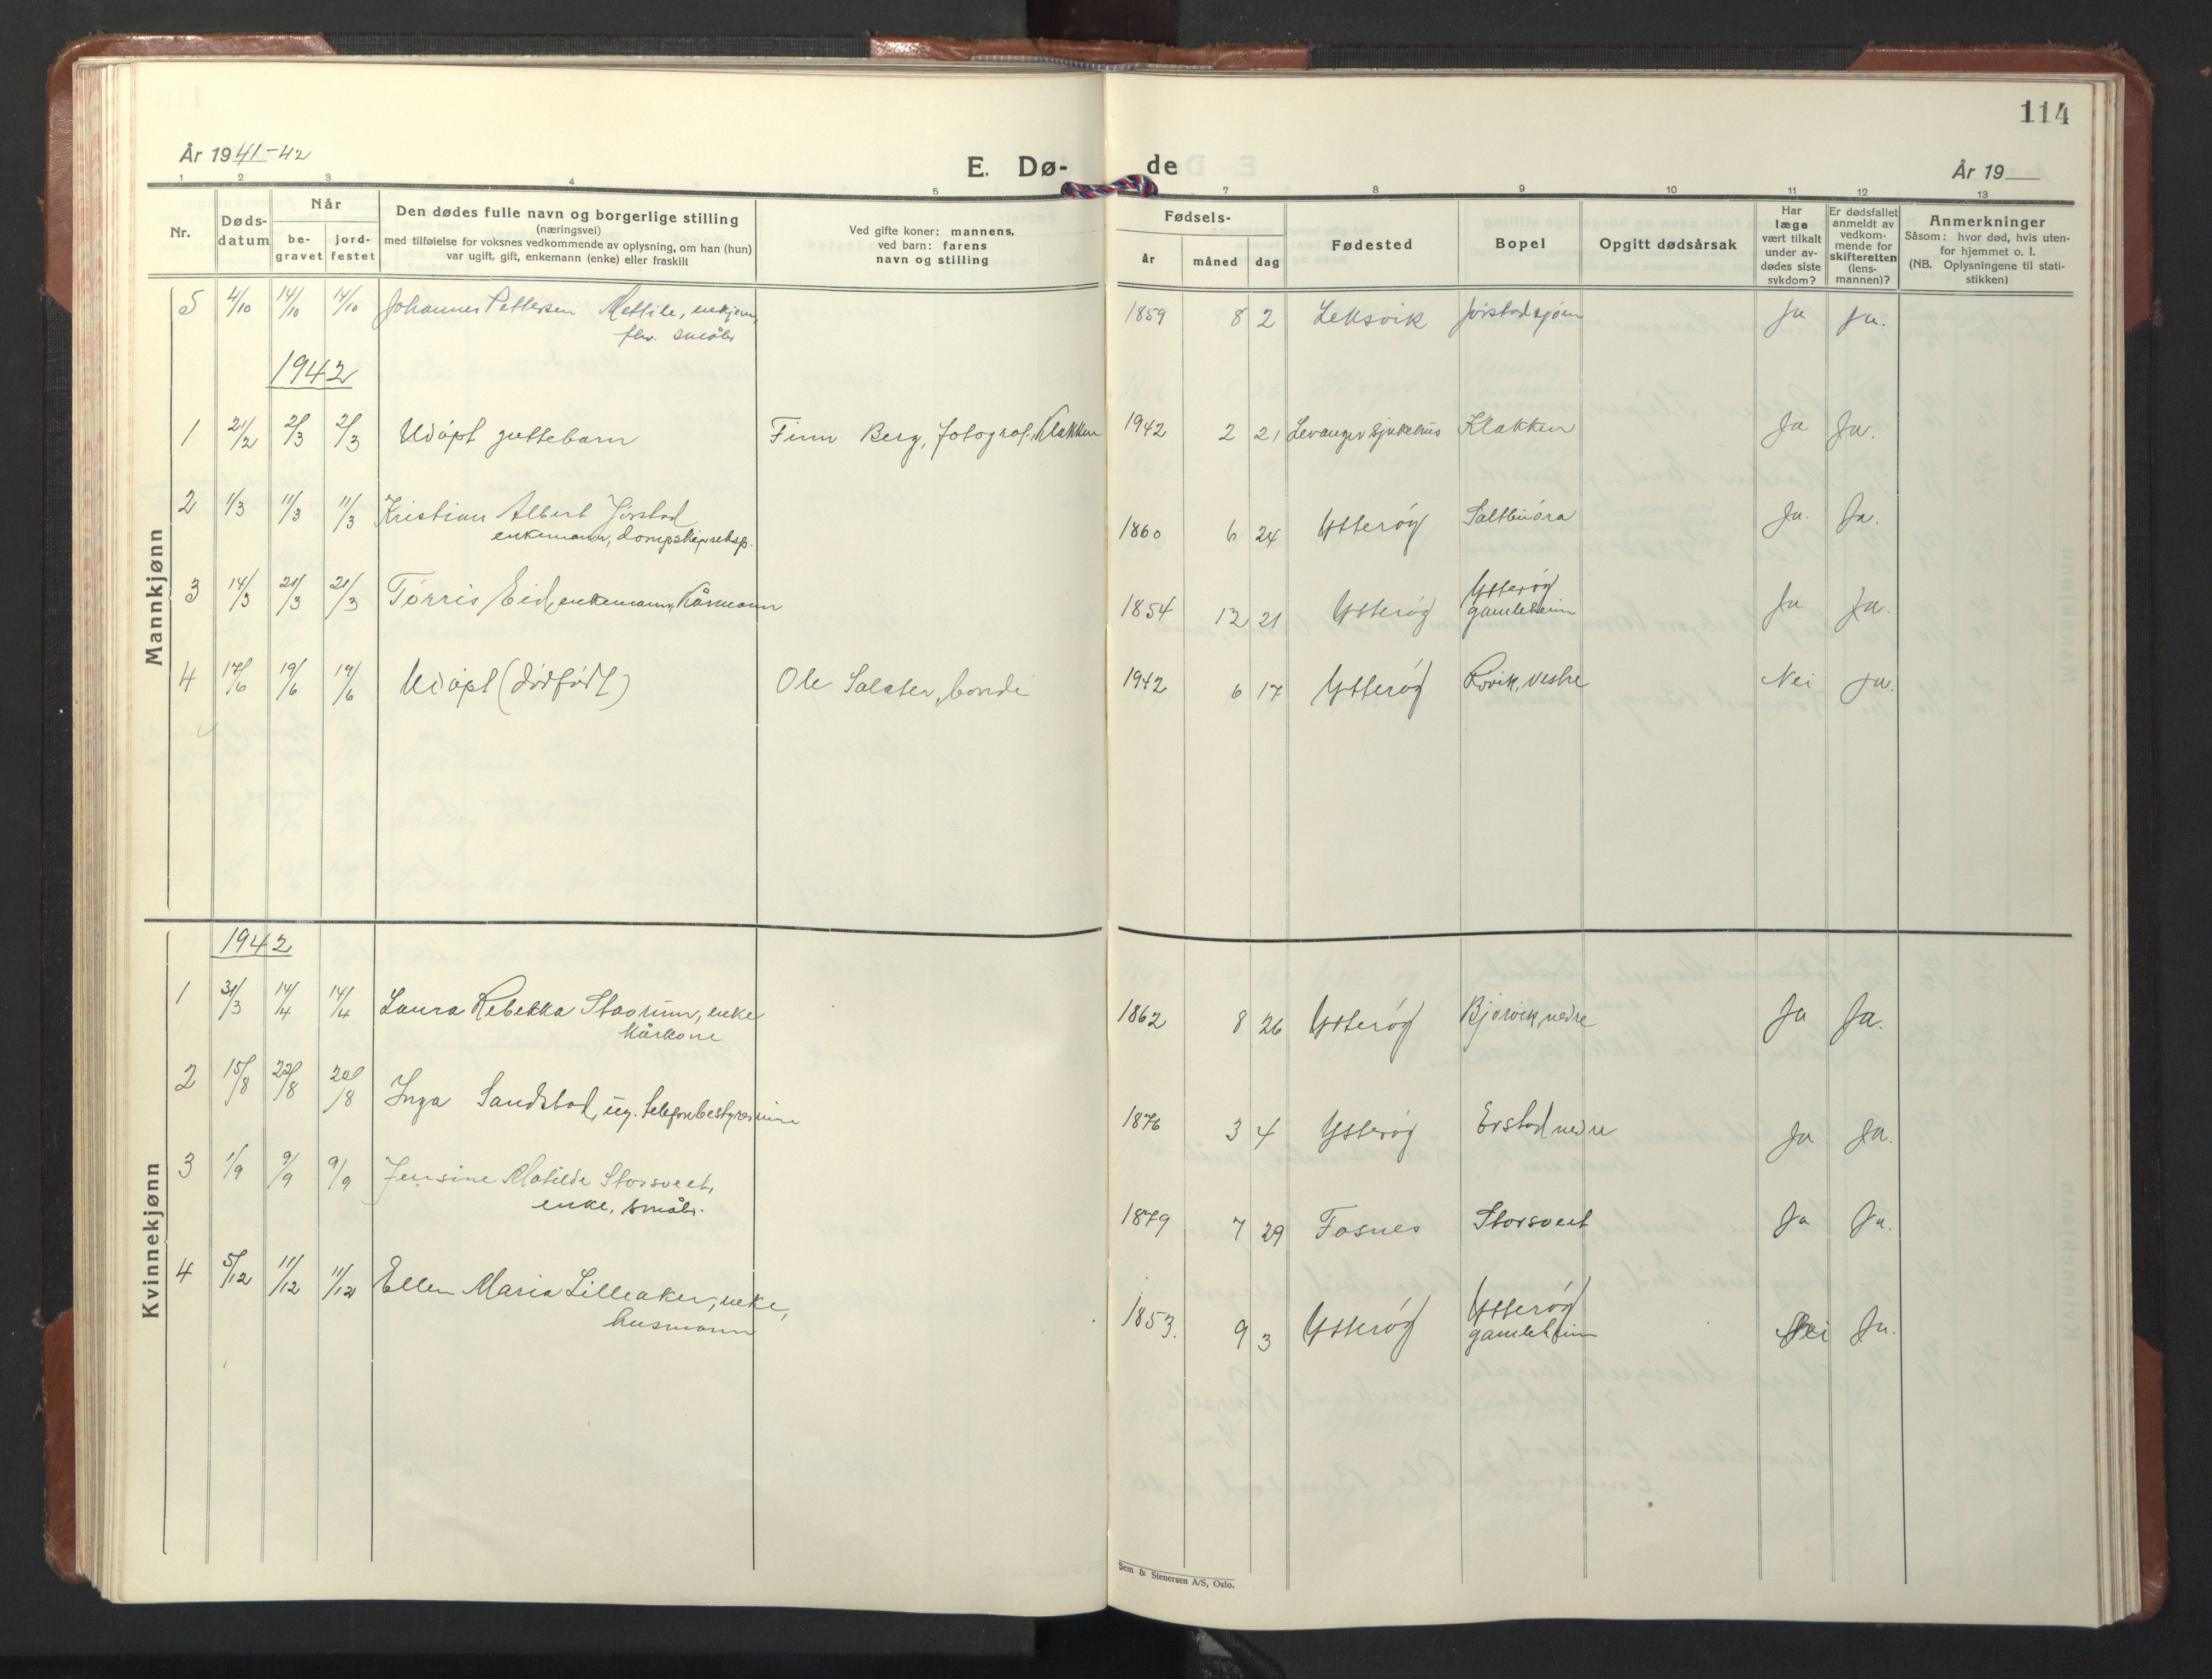 114
År 1941-42
E. Dø-
de
År 19
1 2 3 4 5 7 8 9 10 11 12 13
Nr.
Døds-
datum
Når
be-
gravet
jord-
festet
Den dødes fulle navn og borgerlige stilling
(næringsvei)
med tilføielse for voksnes vedkommende av oplysning, om han (hun)
var ugift, gift, enkemann (enke) eller fraskilt
Ved gifte koner: mannens,
ved barn: farens
navn og stilling
Fødsels-
år måned dag
Fødested
Bopel
Opgitt dødsårsak
Har
læge
vært tilkalt
under av-
dødes siste
sykdom?
Er dødsfallet
anmeldt av
vedkom-
mende for
skifteretten
(lens-
mannen)?
Anmerkninger
Såsom: hvor død, hvis uten-
for hjemmet o. l.
(NB. Oplysningene til stati-
stikken)
Mannkjønn
5 4/10 14/10 14/10 Johannes Pettersen 1859 8 2 Leksvik Jørstadsjøen Ja Ja.
småbr
1942
1 21/2 2/3 2/3 Udøpt guttebarn Finn Berg, fotograf, Klakken 1942 2 21 Levanger sjukehus Klakken Ja Ja.
2 1/3 11/3 11/3 Kristian Albert Jørstad 1860 6 24 Ytterøy Saltbuøra Ja. Ja.
enkemann, dampskipseksp.
3 14/3 21/3 21/3 Tørris Eid, enkemann, Kårmann 1854 12 21 Ytterøy Ytterøy
gamleheim Ja Ja.
4 17/6 19/6 19/6 Udøpt (dødfødt) Ole Salater, bonde 1942 6 17 Ytterøy Røvik, vestre Nei Ja.
Kvinnekjønn
1942
1 31/3 14/4 14/4 Laura Rebekka Stavrum, enke 1862 8 26 Ytterøy Bjørvik, nedre Ja Ja.
Kårkone
2 15/8 22/8 22/8 Inga Sandstad, ug. telefonbestyrerinne 1876 3 4 Ytterøy Erstad nedre Ja Ja.
3 1/9 9/9 9/9 Jensine Matilde Storsveet, 1879 7 29 Fosnes Storsveet Ja Ja.
enke, småbr.
4 5/12 11/12 11/12 Ellen Maria Lilleaker, enke, 1853. 9 3 Ytterøy Ytterøy
gamleheim Nei Ja.
husmann
Sem & Stenersen A/S, Oslo.